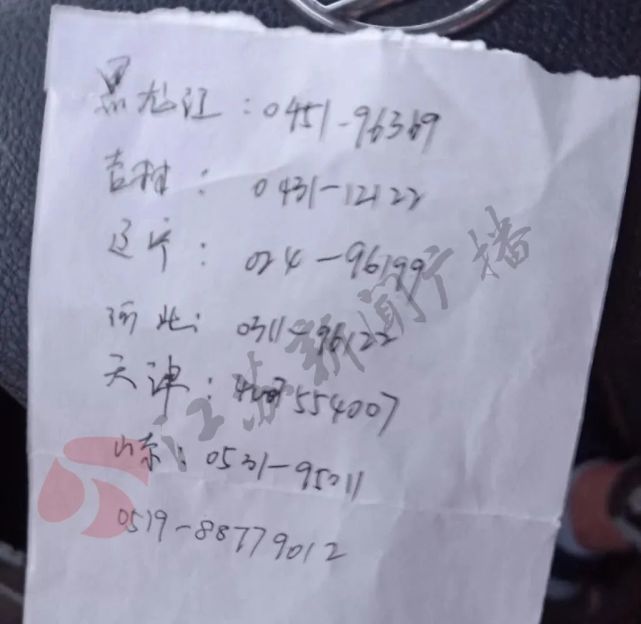 黑龙江：0451-96369
吉林：0431-12122
辽宁：024-96199
河北：0311-96122
天津：554007
山东：0531-95011
0519-88779012
江苏新闻广播